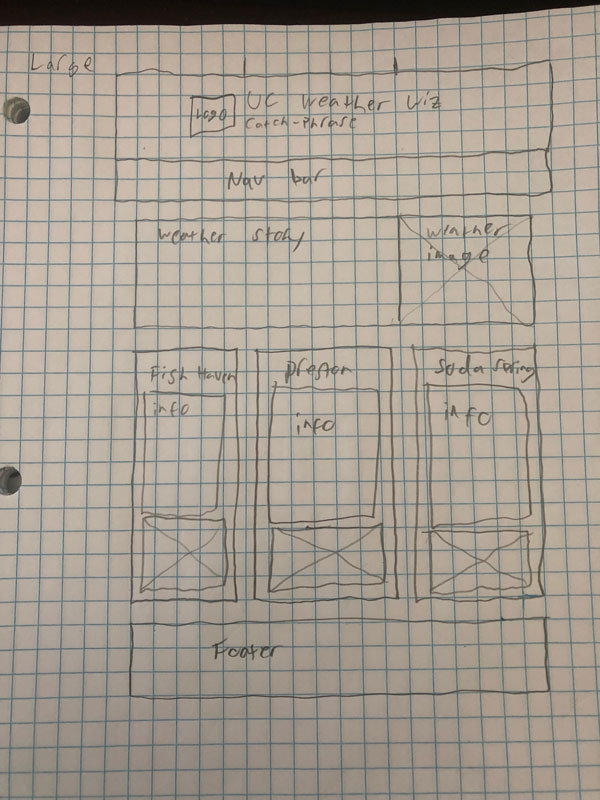 Large
Logo
UC Weather Wiz
Catch-Phrase
Nav bar
Weather story
Weather
image
Fish Haven
Preston
Soda Spring
info
info
info
Footer